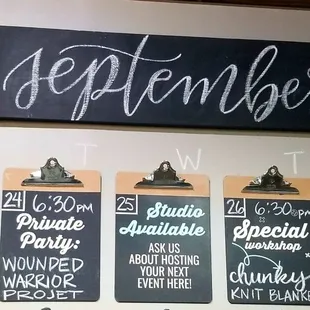 septembe
T W T
24 6:30PM
Private
Party:
WOUNDED
WARRIOR
PROJET
25 Studio
Available
ASK US
ABOUT HOSTING
YOUR NEXT
EVENT HERE!
26 6:30PM
Special
workshop
chunky
KNIT BLANKE